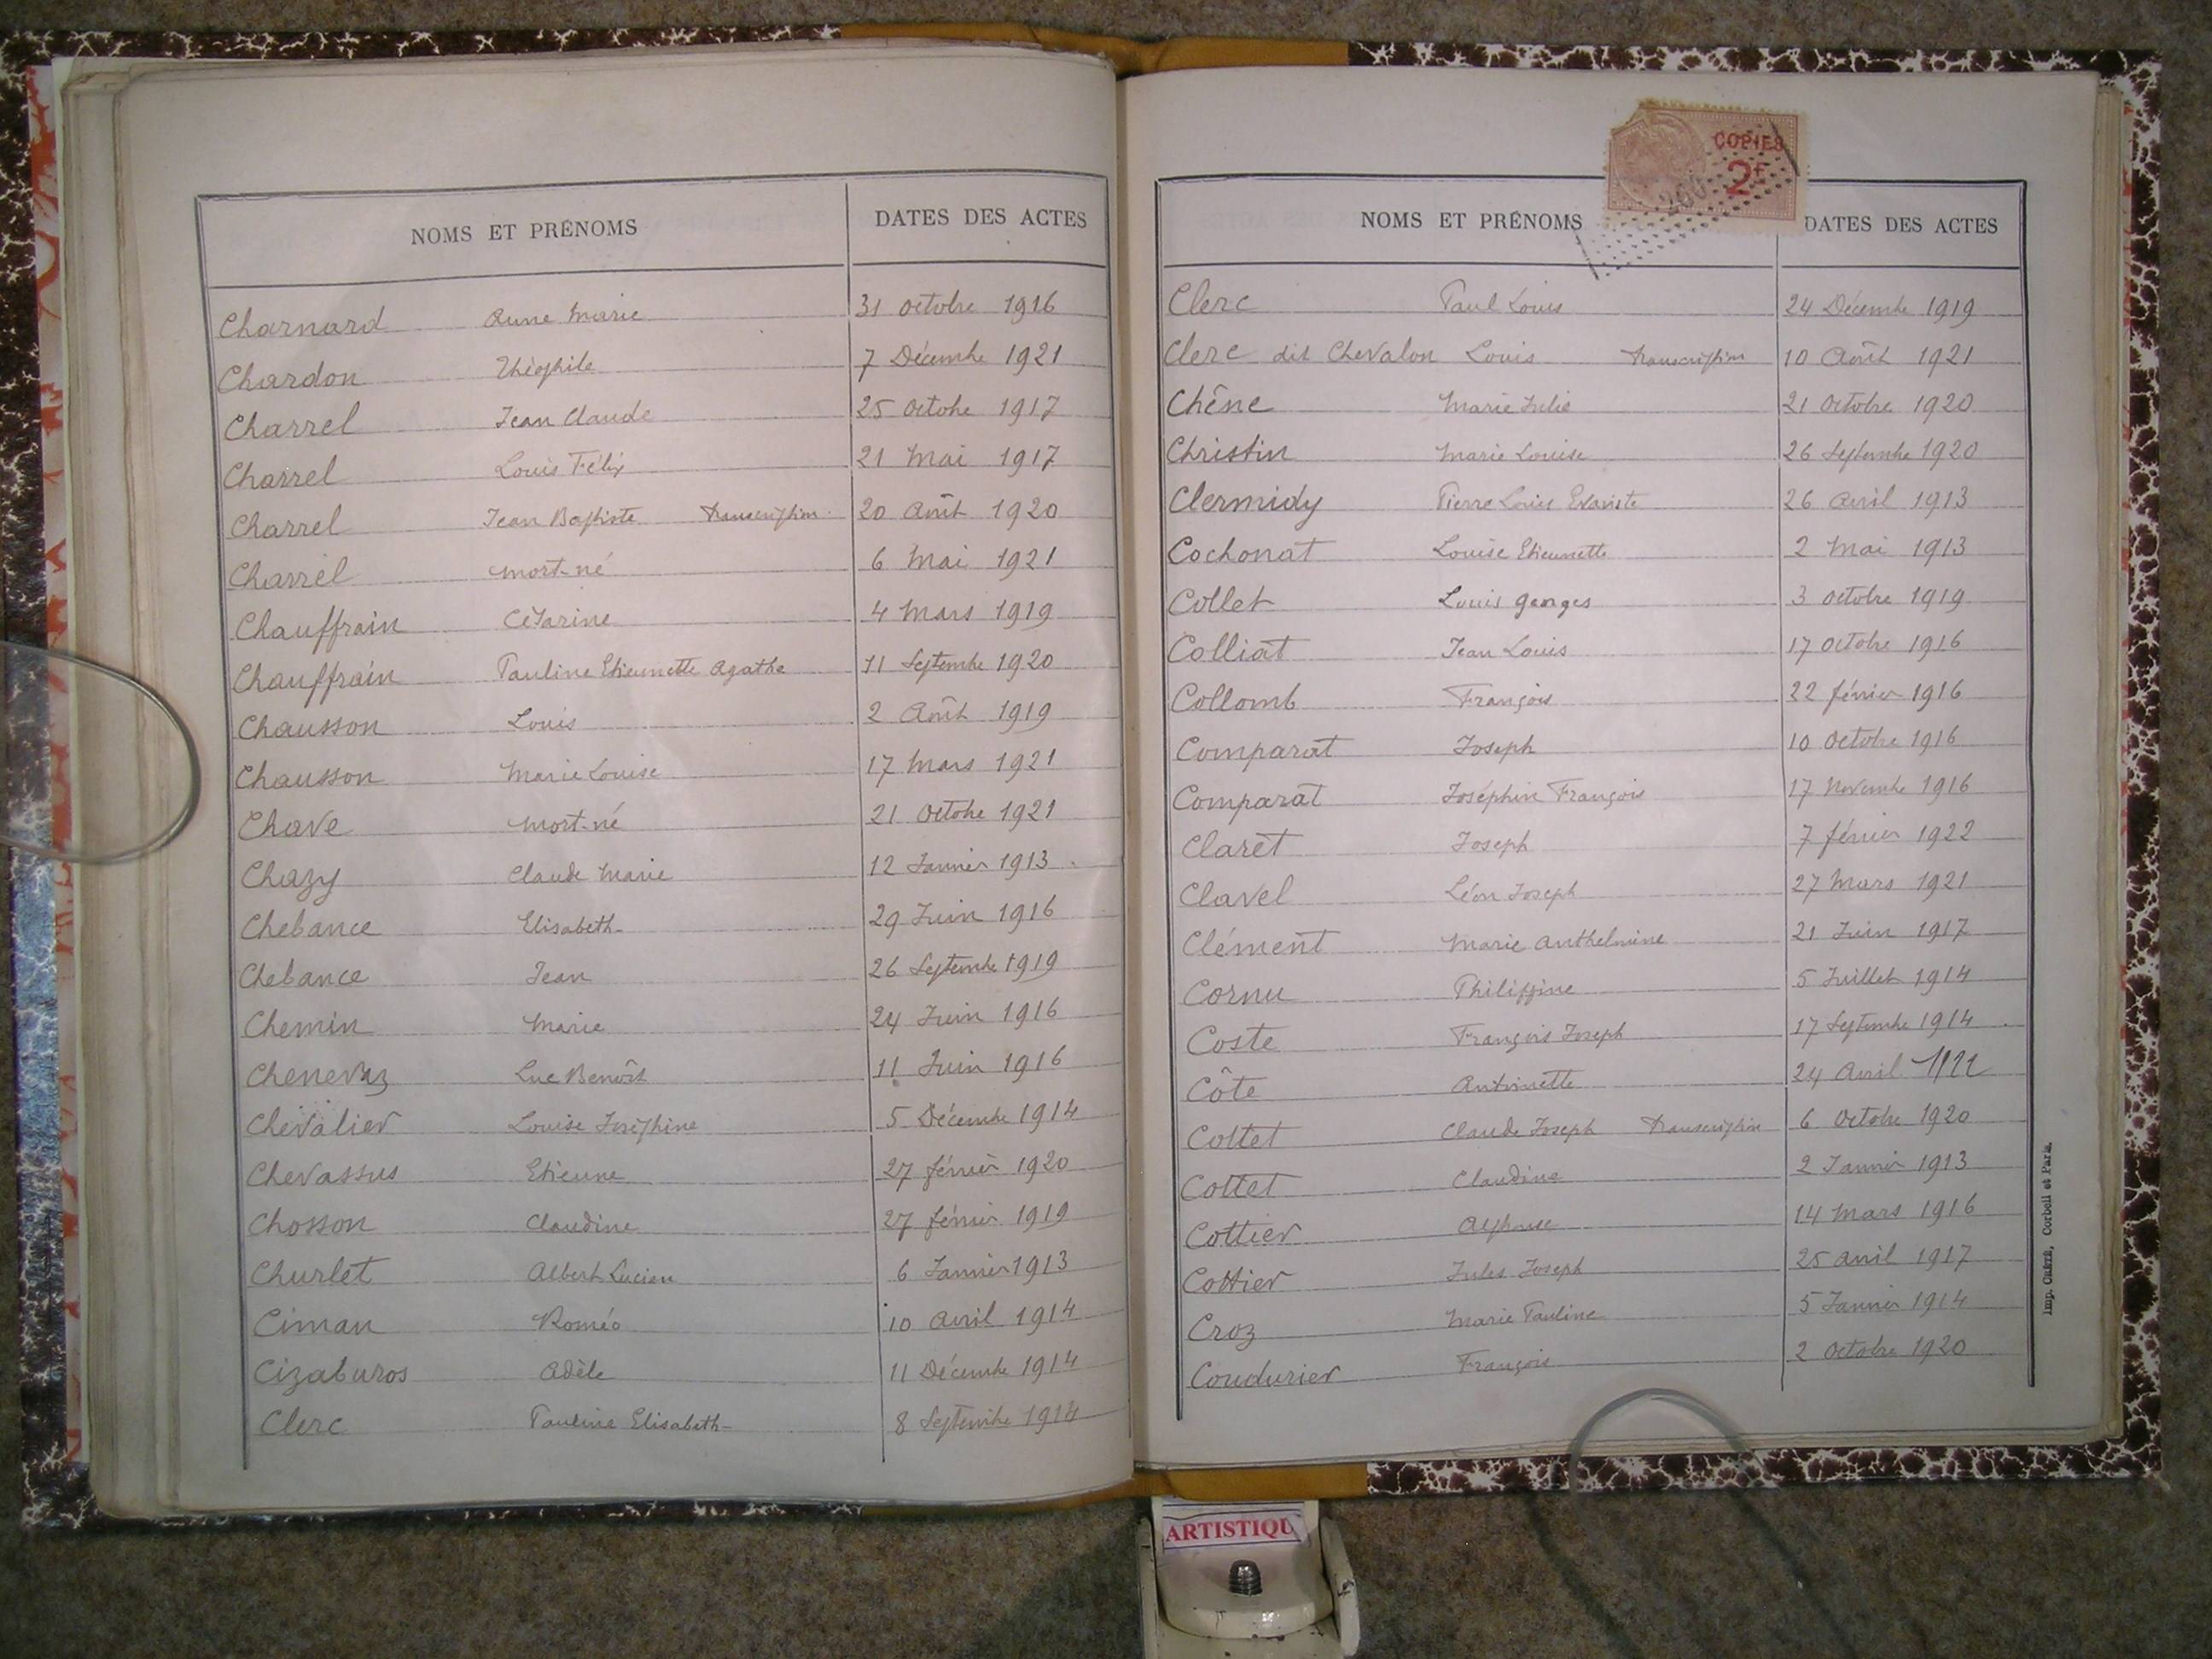 NOMS ET PRÉNOMS DATES DES ACTES
Charnard Anne Marie 31 Octobre 1916
Chardon Théophile 7 Décembre 1921
Charrel Jean Claude 25 Octobre 1917
Charrel Louis Félix 21 Mai 1917
Charrel Jean Baptiste transcription 20 Août 1920
Charrel mort-né 6 Mai 1921
Chauffrain Césarine 4 Mars 1919
Chauffrain Pauline Etiennette Agathe 11 Septembre 1920
Chausson Louis 2 Août 1919
Chausson Marie Louise 17 Mars 1921
Chave Mort-né 21 Octobre 1921
Chazy Claude Marie 12 Janvier 1913
Chebance Elisabeth 29 Juin 1916
Chebance Jean 26 Septembre 1919
Chemin Marie 24 Juin 1916
Chenevaz Luc Benoît 11 Juin 1916
Chevalier Louise Joséphine 5 Décembre 1914
Chevassus Etienne 27 février 1920
Chosson Claudine 27 février 1919
Churlet Albert Lucien 6 Janvier 1913
Ciman Roméo 10 Avril 1914
Cizaburos Adèle 11 Décembre 1914
Clerc Pauline Elisabeth 8 Septembre 1914
COPIES
2F
NOMS ET PRÉNOMS DATES DES ACTES
Clerc Paul Louis 24 Décembre 1919
Clerc dit Chevalon Louis transcription 10 Août 1921
Chêne Marie Julie 21 Octobre 1920
Christin Marie Louise 26 Septembre 1920
Clermidy Pierre Louis Evariste 26 Avril 1913
Cochonat Louise Etiennette 2 Mai 1913
Collet Louis Georges 3 Octobre 1919
Colliat Jean Louis 17 Octobre 1916
Collomb François 22 février 1916
Comparat Joseph 10 Octobre 1916
Comparat Joséphin François 17 Novembre 1916
Claret Joseph 7 février 1922
Clavel Léon Joseph 27 Mars 1921
Clément Marie Anthelmine 21 Juin 1917
Cornu Philippine 5 Juillet 1914
Coste François Joseph 17 Septembre 1914
Côte Antoinette 24 Avril
Cottet Claude Joseph transcription 6 Octobre 1920
Cottet Claudine 2 Janvier 1913
Cottier Alphonse 14 Mars 1916
Cottier Jules Joseph 25 Avril 1917
Croz Marie Pauline 5 Janvier 1914
Coudurier François 2 Octobre 1920
Imp. Crété, Corbeil et Paris.
ARTISTIQU